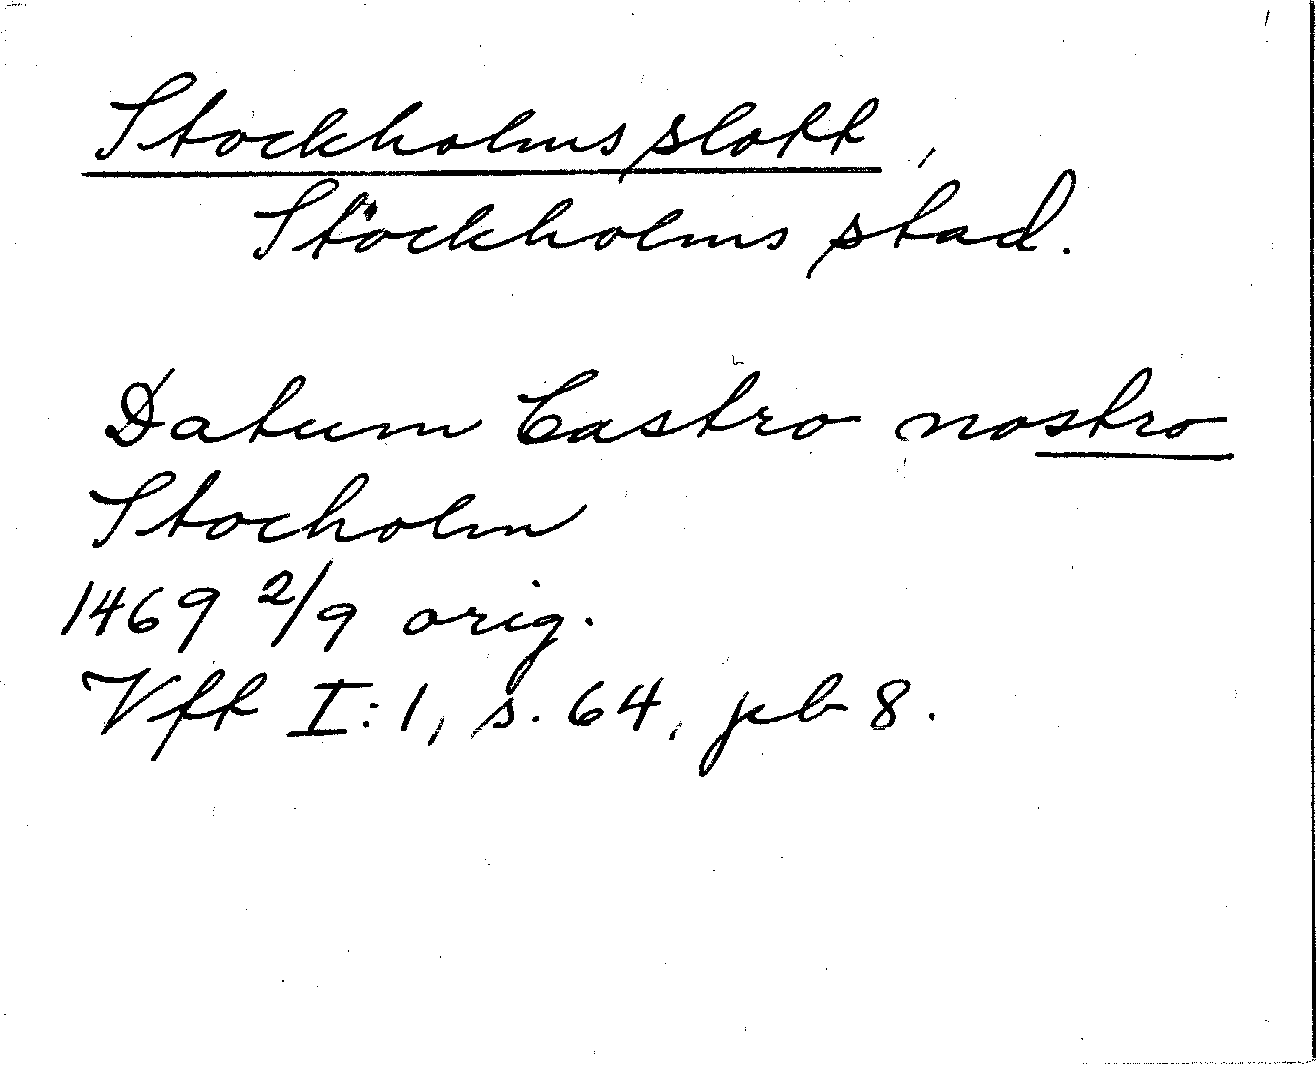 Stockholms slott,
Stockholms stad.
Datum Castro nostro
Stocholm
1469 2/9 orig.
Vft I:1, s. 64, pb 8.